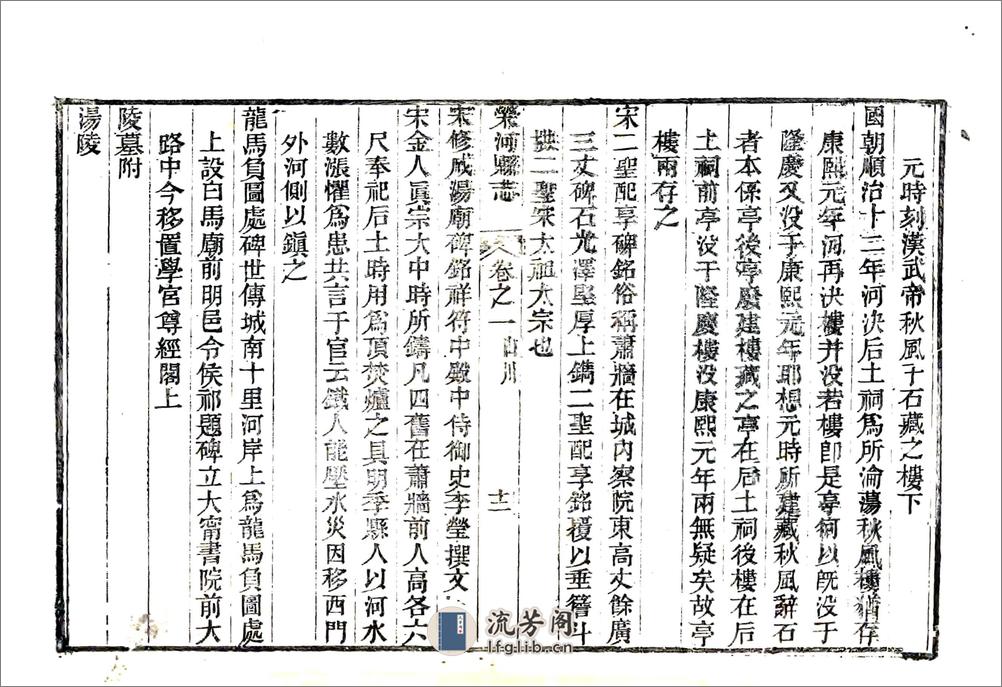 元時刻漢武帝秋風于石藏之樓下
國朝順治十三年河決后土祠爲所淪蕩秋風樓猶存
康熙元年河再決樓并没若樓卽是亭何以旣没于
隆慶又没于康熙元年耶想元時所建藏秋風辭石
者本係亭後亭廢建樓藏之亭在后土祠後樓在后
土祠前亭没于隆慶樓没康熙元年兩無疑矣故亭
樓兩存之
宋二聖配享碑銘俗稱蕭牆在城内察院東高丈餘廣
三丈碑石光澤堅厚上鐫二聖配享銘覆以垂簷斗
拱二聖宋太祖太宗也
榮河縣志 卷之一 山川 十二
宋修成湯廟碑銘祥符中殿中侍御史李瑩撰文
宋金人眞宗大中時所鑄凡四舊在蕭牆前人高各六
尺奉祀后土時用爲頂焚爐之具明季縣人以河水
數漲懼爲患共言于官云鐵人能壓水災因移西門
外河側以鎮之
龍馬負圖處碑世傳城南十里河岸上爲龍馬負圖處
上設白馬廟前明邑令侯祁題碑立大甯書院前大
路中今移置學宮尊經閣上
陵墓附
湯陵
流芳阁
lfglib.cn